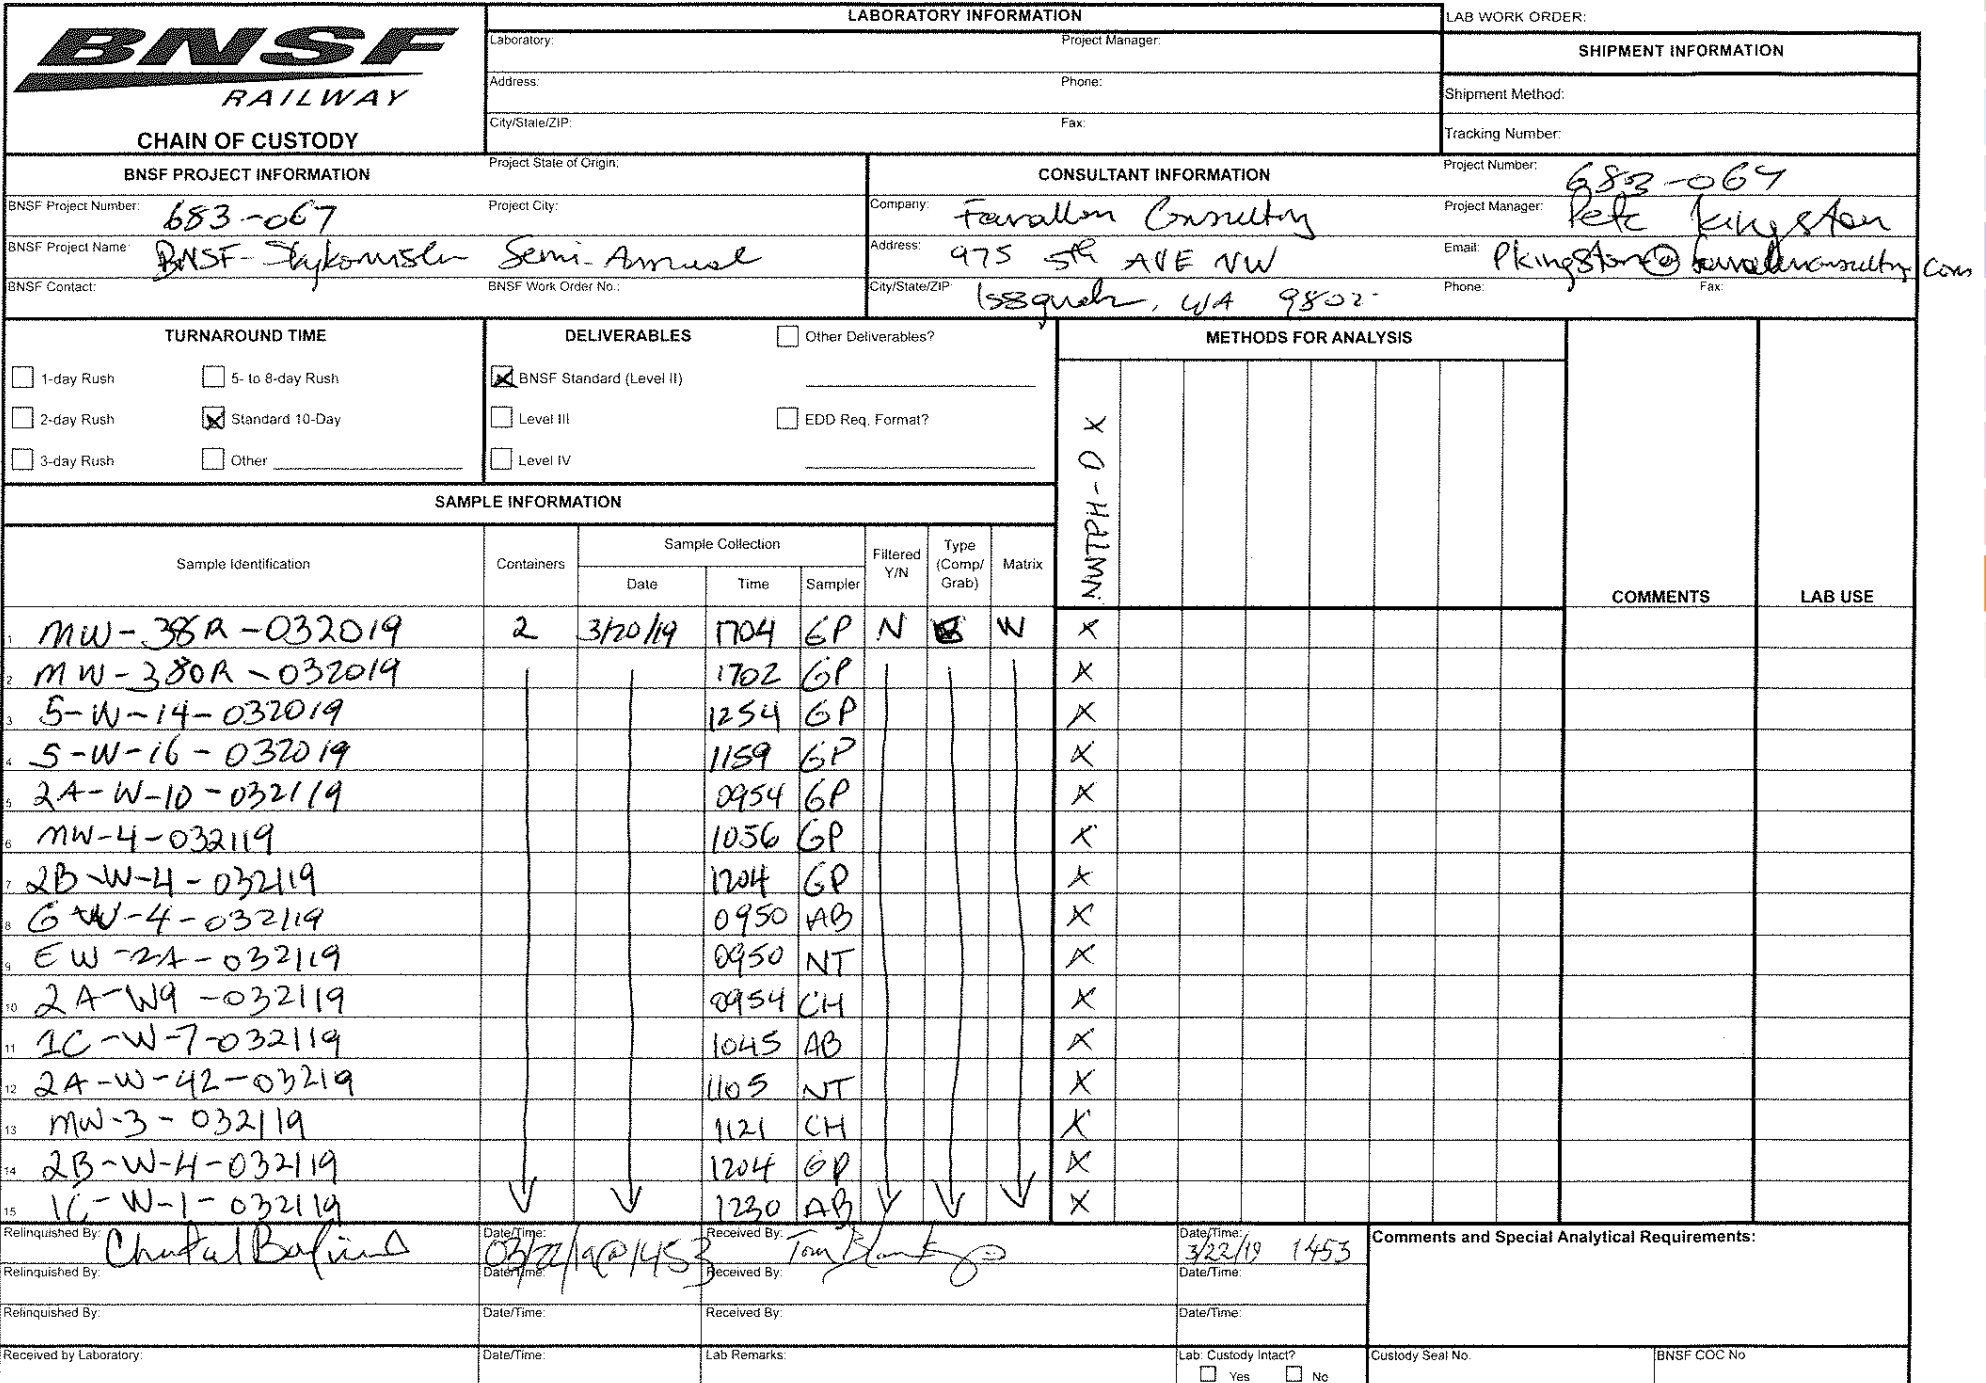 BNSF
RAILWAY
CHAIN OF CUSTODY
LABORATORY INFORMATION
Laboratory: Project Manager:
Address: Phone:
City/State/ZIP: Fax:
LAB WORK ORDER:
SHIPMENT INFORMATION
Shipment Method:
Tracking Number:
BNSF PROJECT INFORMATION Project State of Origin:
BNSF Project Number: 683-067 Project City:
BNSF Project Name: BNSF-Skykomish Semi-Annual
BNSF Contact: BNSF Work Order No.:
CONSULTANT INFORMATION Project Number: 683-067
Company: Farallon Consulting Project Manager: Pete Kingston
Address: 975 5th AVE NW Email: Pkingston@farallonconsulting.com
City/State/ZIP: Issaquah, WA 9802 Phone: Fax:
TURNAROUND TIME
1-day Rush 5- to 8-day Rush
2-day Rush X Standard 10-Day
3-day Rush Other
DELIVERABLES Other Deliverables?
X BNSF Standard (Level II)
Level III EDD Req. Format?
Level IV
METHODS FOR ANALYSIS
NWTPH-DX
COMMENTS
LAB USE
SAMPLE INFORMATION
Sample Identification Containers Sample Collection Date Time Sampler Filtered Y/N Type (Comp/Grab) Matrix
1 MW-38R-032019 2 3/20/19 1704 GP N G W X
2 MW-380R-032019 1702 GP X
3 5-W-14-032019 1254 GP X
4 5-W-16-032019 1159 GP X
5 2A-W-10-032119 0954 GP X
6 MW-4-032119 1056 GP X
7 2B-W-4-032119 1204 GP X
8 GW-4-032119 0950 AB X
9 EW-2A-032119 0950 NT X
10 2A-W9-032119 0954 CH X
11 1C-W-7-032119 1045 AB X
12 2A-W-42-03219 1105 NT X
13 MW-3-032119 1121 CH X
14 2B-W-4-032119 1204 GP X
15 1C-W-1-032119 1230 AB X
Relinquished By: Date/Time: 03/22/19@1453 Received By: Tom Date/Time: 3/22/19 1453
Relinquished By: Date/Time: Received By: Date/Time:
Relinquished By: Date/Time: Received By: Date/Time:
Comments and Special Analytical Requirements:
Received by Laboratory: Date/Time: Lab Remarks: Lab: Custody Intact? Custody Seal No. BNSF COC No
Yes No